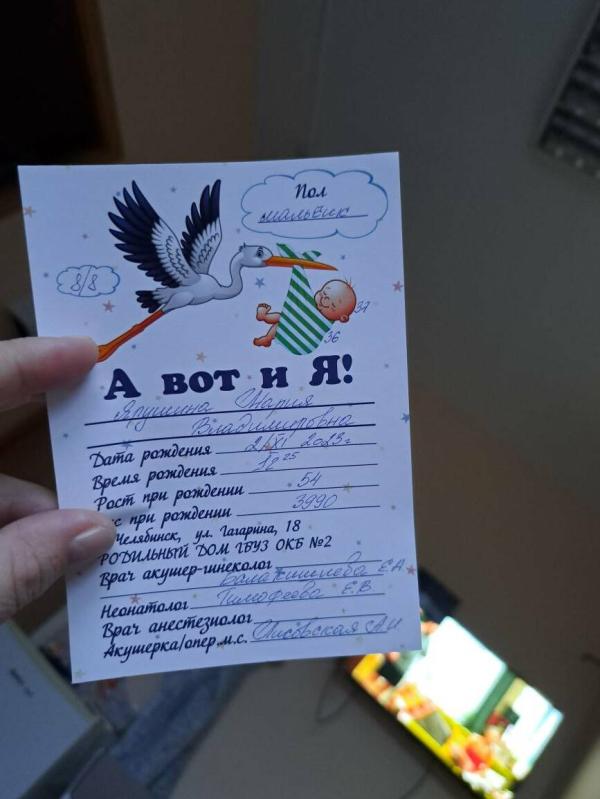 Пол
мальчик
8/8
37
36
А вот и Я!
Ярушина Мария
Владимировна
Дата рождения 2/XI 2023г
Время рождения 18 25
Рост при рождении 54
с при рождении 3990
Челябинск, ул. Гагарина, 18
РОДИЛЬНЫЙ ДОМ ГБУЗ ОКБ №2
Врач акушер-гинеколог
Е.А
Неонатолог Тимофеева Е.В.
Врач анестезиолог
Акушерка/опер.м.с. Лисовская А.И